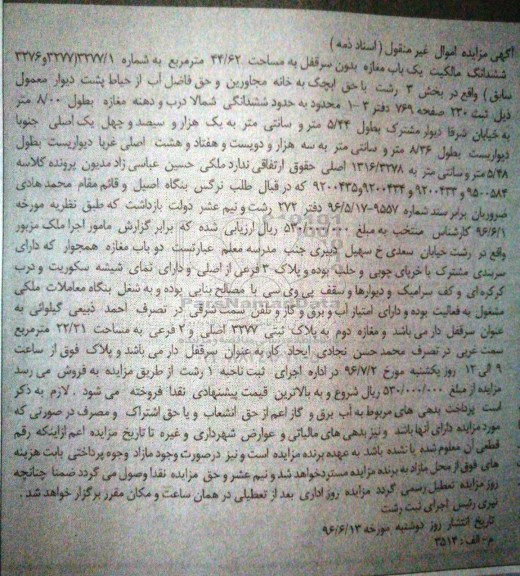 آگهی مزایده اموال غیر منقول (اسناد ذمه)
ششدانگ مالکیت یک باب مغازه بدون سرقفل به مساحت ۴۴/۶۲ مترمربع به شماره ۳۲۷۷/۳۲۷۷/۱و۳۲۷۶
سابق) واقع در بخش ۳ رشت با حق ایچک به خانه مجاورین و حق فاصل آب از حیاط پشت دیوار معمول
ذیل ثبت ۲۳۰ صفحه ۷۶۹ دفتر ۳-۱ محدود به حدود ششدانگی شمالا درب و دهنه مغازه بطول ۸/۰۰ متر
به خیابان شرقا دیوار مشترک بطول ۵/۴۳ متر و سانتی متر به یک هزار و سیصد و چهل یک اصلی جنوبا
دیواریست بطول ۸/۳۶ متر و سانتی متر به سه هزار و دویست و هفتاد و هشت اصلی غربا دیواریست بطول
۵/۴۸ متر و سانتی متر به ۱۳۱۶/۳۲۷۸ اصلی حقوق ارتفاقی ندارد ملکی حسین عباسی زاد مدیون پرونده کلاسه
۹۵۰۰۵۸۳ و ۹۲۰۰۴۳۳ و ۹۲۰۰۴۳۴و۹۲۰۰۴۳۵ که در قبال طلب نرگس بنگاه اصیل و قائم مقام محمد هادی
ضروریان برابر سند شماره ۹۵۵۷-۹۶/۵/۱۷ دفتر ۲۷۲ رشت و نیم عشر دولت بازداشت که طبق نظریه مورخه
۹۶/۶/۱ کارشناس منتخب به مبلغ ۵۳۰/۰۰۰/۰۰۰ ریال ارزیابی شده که برابر گزارش مامور اجرا ملک مزبور
واقع در رشت خیابان سعدی خ سهیل دبیری جنب مدرسه معلم عبارتست دو باب مغازه همجوار که دارای
سربندی مشترک با خرپای چوبی و حلب بوده و پلاک ۳ فرعی از اصلی و دارای نمای شیشه سکوریت و درب
کرکره ای و کف سرامیک و دیوارها و سقف پی وی سی با مصالح بنایی بوده و به شغل بنگاه معاملات ملکی
مشغول به فعالیت بوده و دارای امتیاز آب و برق و گاز و تلفن سمت شرقی در تصرف احمد ذبیعی گیلوائی به
عنوان سرقفل دار می باشد و مغازه دوم به پلاک ثبتی ۳۲۷۷ اصلی و ۲ فرعی به مساحت ۲۲/۲۱ مترمربع
سمت غربی در تصرف محمد حسن نجادی ایجاد کار به عنوان سرقفل دار می باشد و پلاک فوق از ساعت
۹ الی ۱۲ روز یکشنبه مورخ ۹۶/۷/۲ در اداره اجرای ثبت ناحیه ۱ رشت از طریق مزایده به فروش می رسد
مزایده از مبلغ ۵۳۰/۰۰۰/۰۰۰ ریال شروع و به بالاترین قیمت پیشنهادی نقدا فروخته می شود . لازم به ذکر
است پرداخت بدهی های مربوط به آب برق و گاز اعم از حق انشعاب و یا حق اشتراک و مصرف در صورتی که
مورد مزایده دارای آنها باشد و نیز بدهی های مالیاتی و عوارض شهرداری و غیره تا تاریخ مزایده اعم ازاینکه رقم
قطعی آن معلوم شده یا نشده باشد به عهده برنده مزایده است و نیز درصورت وجود مازاد وجوه پرداختی بابت هزینه
های فوق از محل مازاد به برنده مزایده مسترد خواهد شد و نیم عشر و حق مزایده نقدا وصول می گردد ضمنا چنانچه
روز مزایده تعطیل رسمی گردد مزایده روز اداری بعد از تعطیلی در همان ساعت و مکان مقرر برگزار خواهد شد .
نیری رئیس اجرای ثبت رشت
تاریخ انتشار روز دوشنبه مورخه ۹۶/۶/۱۳
ر م-الف : ۳۵۱۴
ParsNamadData